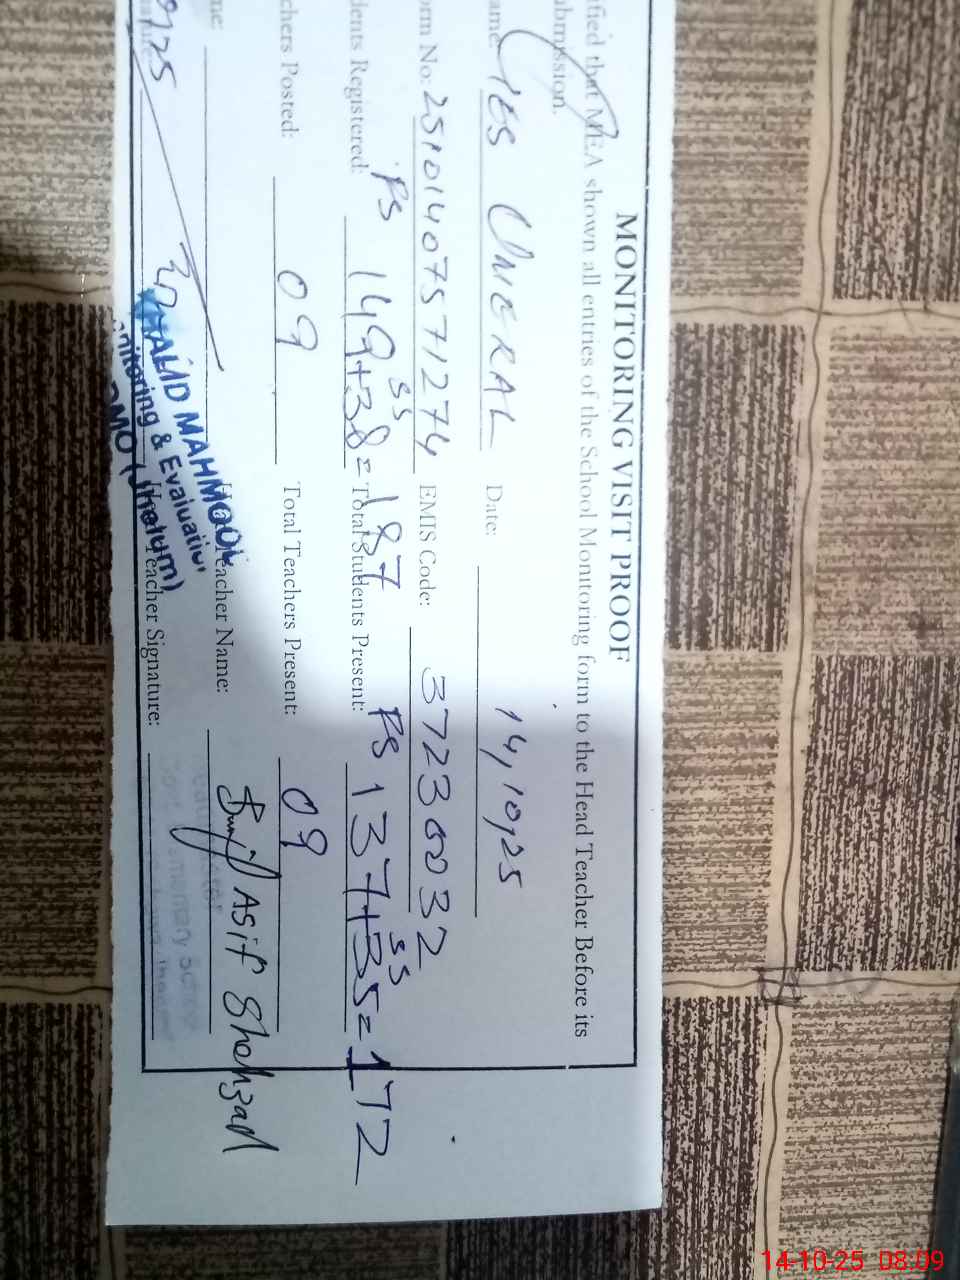 MONITORING VISIT PROOF
ified that MEA shown all entries of the School Monitoring form to the Head Teacher Before its
ubmission.
ame: GES UMERAL Date: 14,10,25
orm No: 25101407571274 EMIS Code: 37230032
dents Registered: PS 149+38 SS = 187 Total Students Present: PS 137+35 SS = 172
chers Posted: 09 Total Teachers Present: 09
me: Teacher Name: Asif Shehzad
KHALID MAHMOOD
onitoring & Evaluation
DMO (Jhelum)
Teacher Signature:
14-10-25 08:09